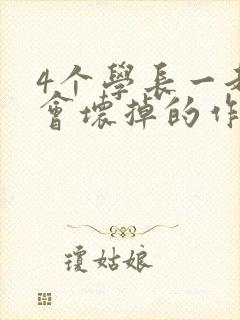 4个學長一
會壞掉的作
瓊姑娘